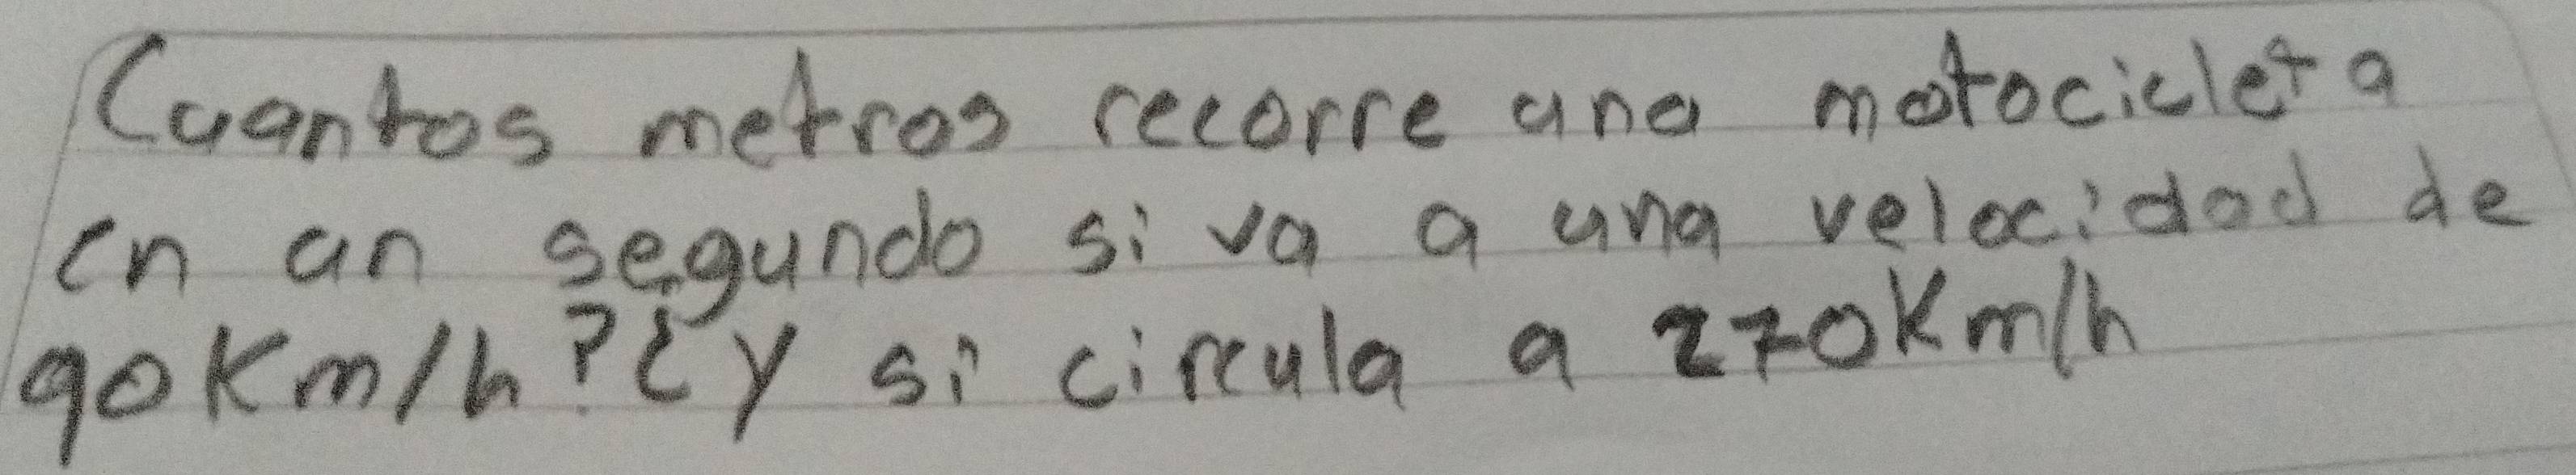 Cuantos metros recorre una motocicleta
en un segundo si va a una velocidad de
90Km/h?¿y si circula a 270Km/h